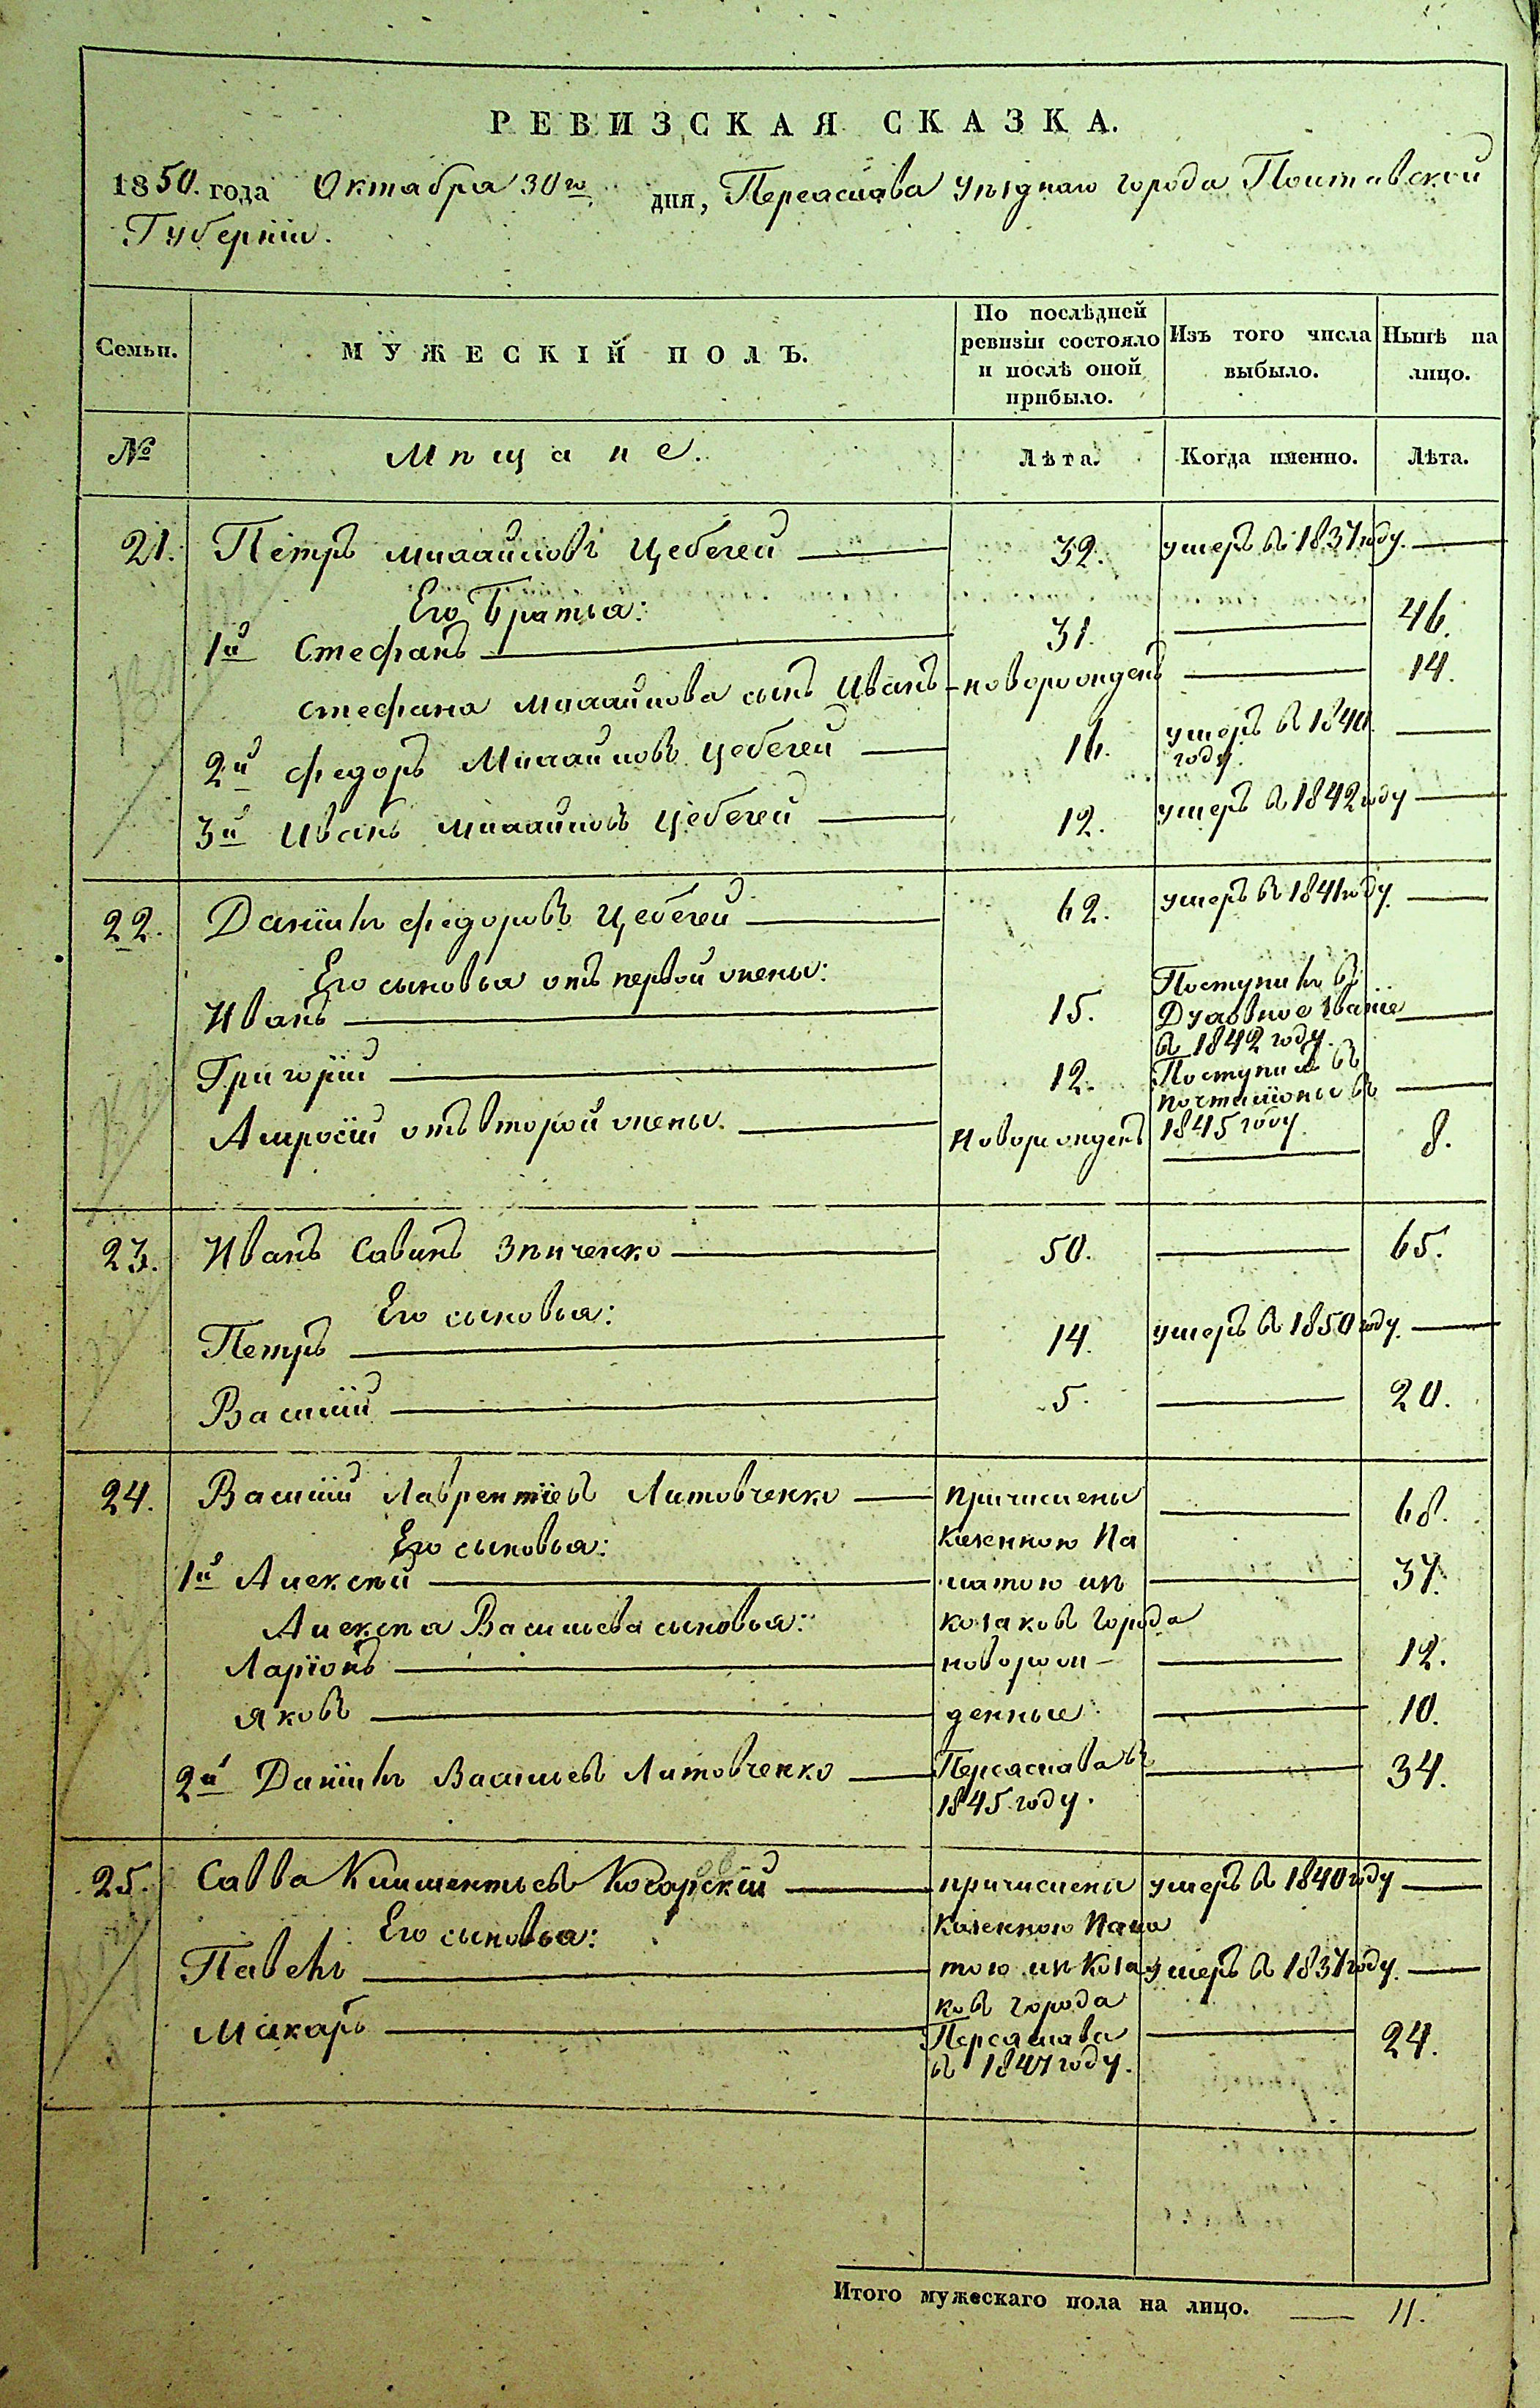 РЕВИЗСКАЯ СКАЗКА.
1850. года Октабра 30го дня, Переаслава уѣзднаго города Полтавской
Губерніи.
Семьи. МУЖЕСКІЙ ПОЛЪ. По послѣдней ревизіи состояло и послѣ оной прибыло. Изъ того числа выбыло. Нынѣ на лицо.
№ Мѣщане. Лѣта. Когда именно. Лѣта.
21. Петръ Михайловъ Цебегей 32. умеръ въ 1837 году.
Его Братья:
1й Стефанъ 31. 46.
Стефана Михайлова сынъ Иванъ новорожденъ 14.
2й Федоръ Михайловъ Цебегей 16. умеръ въ 1840 году.
3й Иванъ Михайловъ Цебегей 12. умеръ в 1842 году
22. Даніилъ Федоровъ Цебегей 62. умеръ в 1841 году.
Его сыновья отъ первой жены:
Иванъ 15. Поступилъ въ Духовное званіе в 1842 году.
Григорій 12. Поступилъ въ почталіоны въ 1845 году.
Амросій отъ второй жены. Новорожденъ 8.
23. Иванъ Савинъ Зѣнченко 50. 65.
Его сыновья:
Петръ 14. умеръ в 1850 году.
Василій 5. 20.
24. Василій Лаврентіевъ Литовченко причислены 68.
Его сыновья: Казенною Па
1й Алексѣй латою изъ 37.
Алексѣя Васильева сыновья: козаковъ города
Ларіонъ новорож- 12.
Яковъ денные 10.
2й Даніилъ Васильевъ Литовченко Переаслава въ 34.
1845 году.
25. Савва Климентьевъ Кочарскій причислены умеръ в 1840 году
Его сыновья: Казенною Пала
Павелъ тою изъ Коза умеръ в 1837 году.
ковъ города
Макаръ Переаслава 24.
въ 1841 году.
Итого мужескаго пола на лицо. 11.